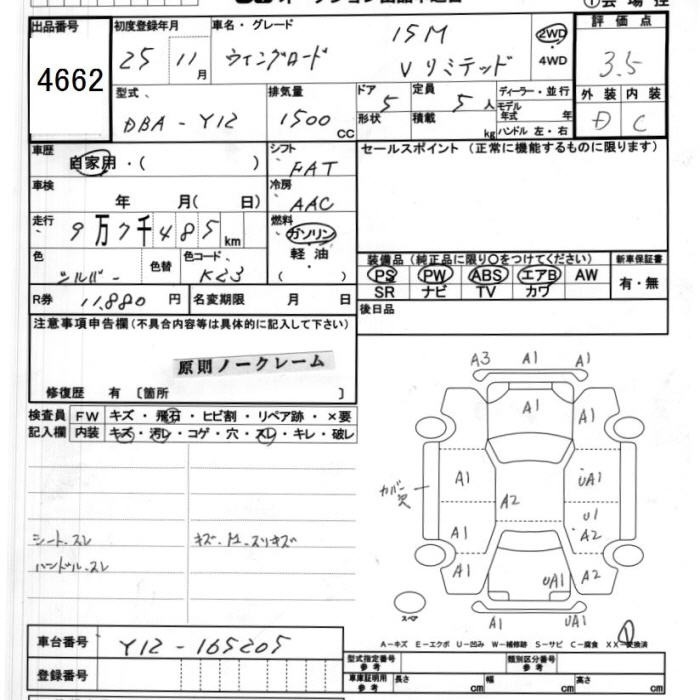 出品番号 4662
初度登録年月 25 11月
車名・グレード ウィングロード 15M Vリミテッド
2WD
4WD
評価点 3.5
外装 内装
D C
型式 DBA-Y12
排気量 1500 CC
ドア 5
形状
定員 5人
積載 kg
ディーラー・並行
モデル年式 年
ハンドル 左・右
車歴 自家用・( )
シフト FAT
セールスポイント(正常に機能するものに限ります)
車検 年 月( 日)
冷房 AAC
走行 9万7千485km
燃料 ガソリン
軽油
( )
色 シルバー
色替
色コード K23
装備品(純正品に限り〇をつけてください)
新車保証書
PS PW ABS エアB AW
SR ナビ TV カワ
有・無
R券 11,880円
名変期限 月 日
後日品
注意事項申告欄(不具合内容等は具体的に記入して下さい)
原則ノークレーム
修復歴 有 〔箇所 〕
検査員記入欄
FW キズ・飛石・ヒビ割・リペア跡・×要
内装 キズ・汚レ・コゲ・穴・スレ・キレ・破レ
シート.スレ
ハンドル.スレ
A3 A1 A1
A1
A1 UA1
カバー欠
A2
U1
A1 A2
A1 UA1 A2
スペア
A1 UA1
A-キズ E-エクボ U-凹み W-補修跡 S-サビ C-腐食 X XX-交換済
車台番号 Y12-165205
登録番号
型式指定番号 参考
類別区分番号 参考
車庫証明用 参考
長さ cm 幅 cm 高さ cm